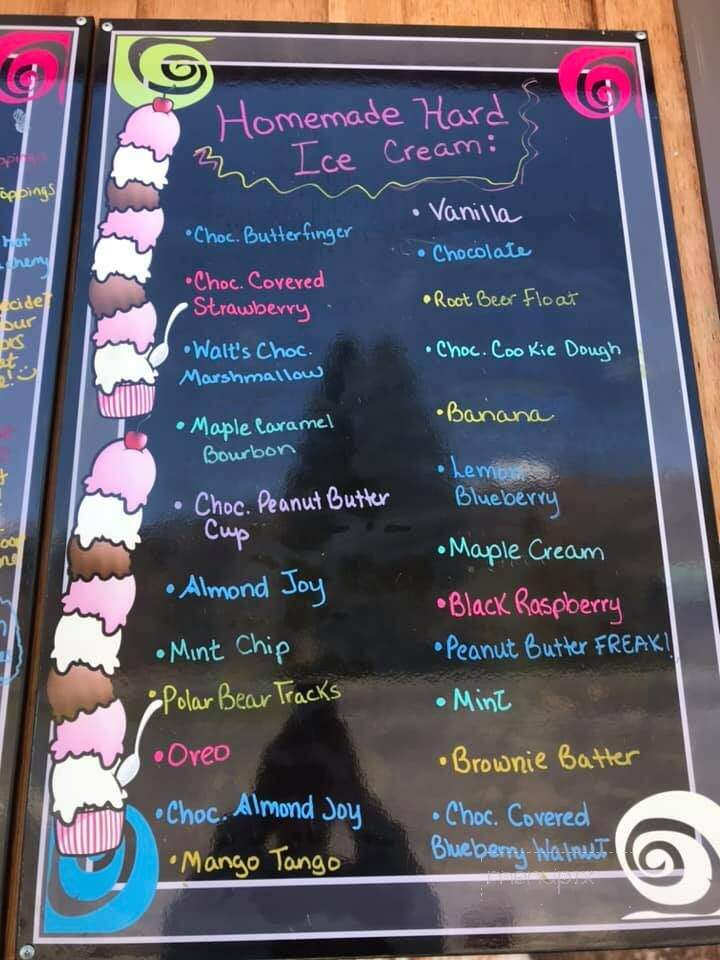 Homemade Hard
Ice Cream:
• Choc. Butterfinger
• Choc. Covered
Strawberry
• Walt's Choc.
Marshmallow
• Maple Caramel
Bourbon
• Choc. Peanut Butter
Cup
• Almond Joy
• Mint Chip
• Polar Bear Tracks
• Oreo
• Choc. Almond Joy
• Mango Tango
• Vanilla
• Chocolate
• Root Beer Float
• Choc. Cookie Dough
• Banana
• Lemon
Blueberry
• Maple Cream
• Black Raspberry
• Peanut Butter FREAK!
• Mint
• Brownie Batter
• Choc. Covered
Blueberry Walnut
menupix
oppings
hot